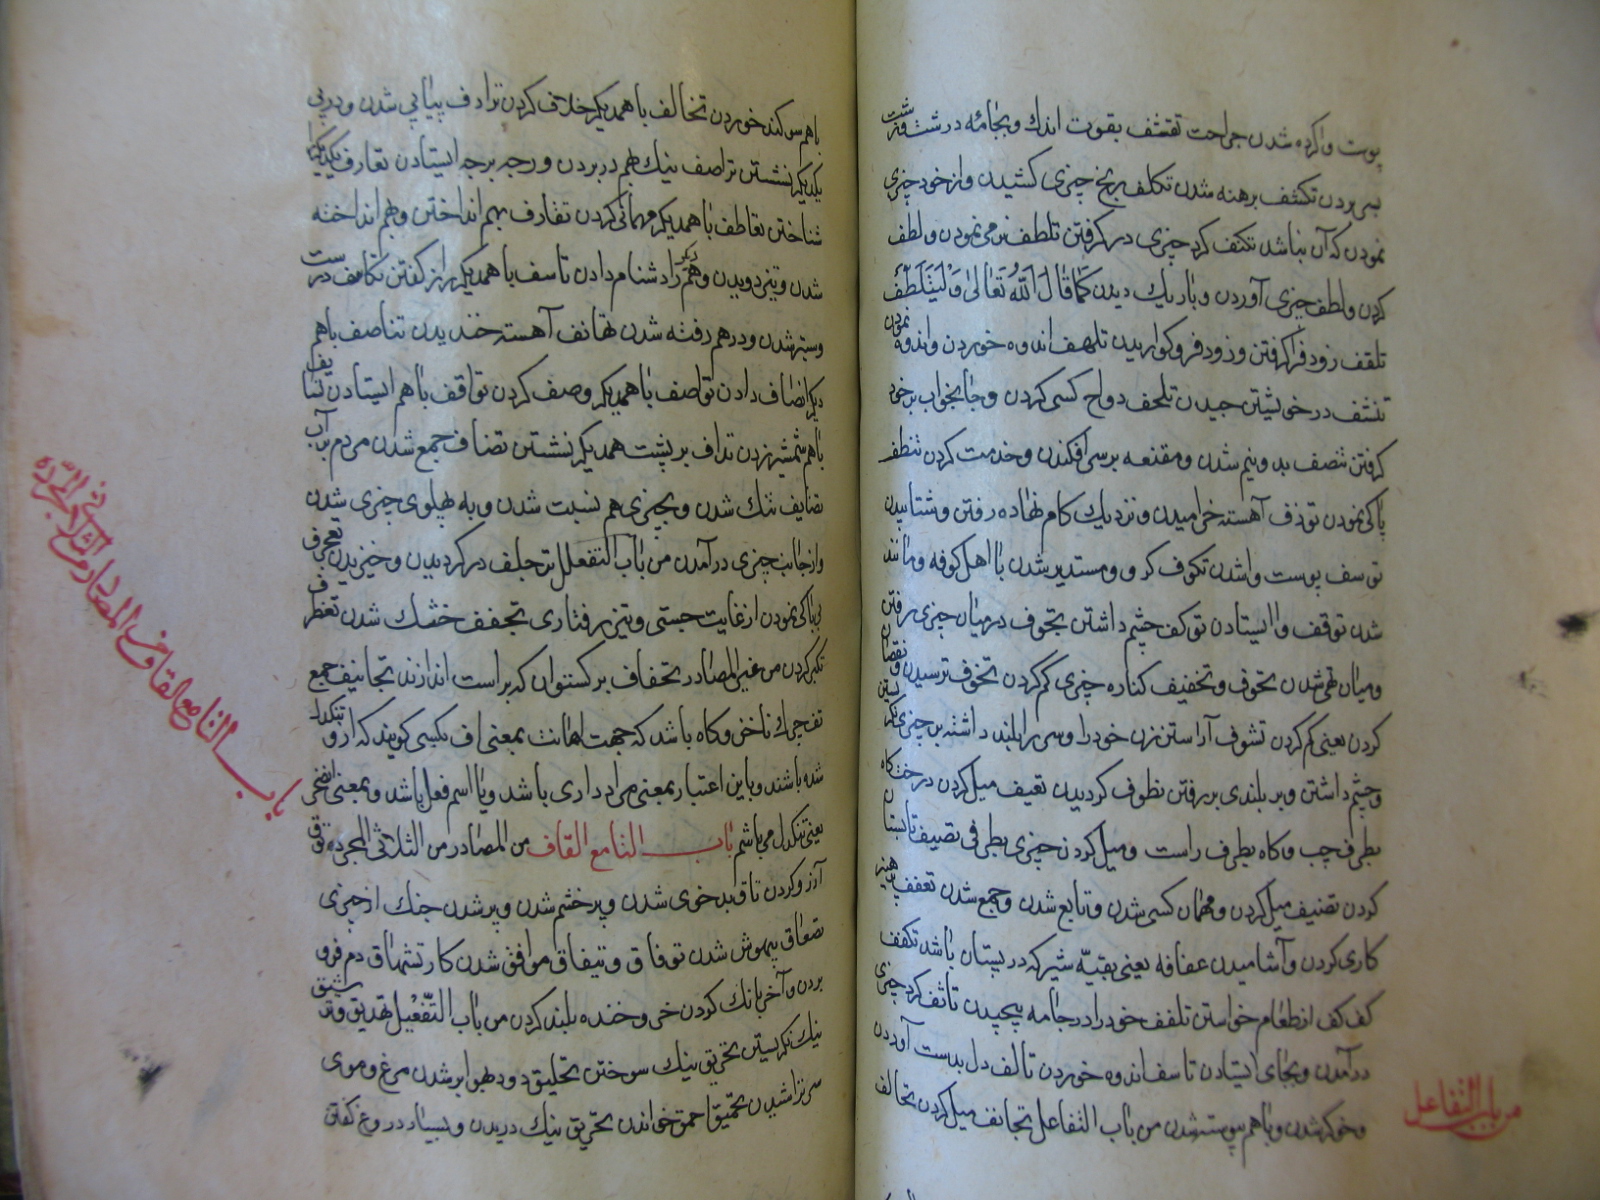 پوست واکرده شدن جراحت تقشف بقوت اندک وبجامهٔ درشت
بسر بردن تکشف برهنه شدن تکلف برنج چیزی کشیدن واز خود چیزی
نمودن که آن نباشد تکنف کرد چیزی در گرفتن تلطف نرمی نمودن ولطف
کردن ولطف چیزی آوردن وباریک دیدن کما قال الله تعالی ولیتلطف
تلقف زود فرا گرفتن وزود فرو کواریدن تلهف اندوه خوردن واندوه نمودن
تنشف در خویشتن چیدن تلحف دواج کسی کردن وجامه خواب بر خود
گرفتن تنصف بدو نیم شدن ومقنعه بر سر افکندن وخدمت کردن تنظف
پاکی نمودن توذف آهسته خرامیدن ونزدیک کام نهاده رفتن وشتابیدن
توسف پوست واشدن تکوف کرد ومستدیر شدن با اهل کوفه ومانند
شدن توقف وا ایستادن توکف چشم داشتن تجوف در میان چیزی رفتن
ومیان تهی شدن تحوف وتحفیف کناره چیزی کم کردن تخوف ترسیدن ونقصان
کردن یعنی کم کردن تشوف آراستن زن خود را وسر را بلند داشته بر چیزی
وچشم داشتن وبر بلندی بر رفتن تطوف کردیدن تعیف میل کردن درخت گاه
بطرف چپ وگاه بطرف راست ومیل کردن چیزی بطرفی تصیف تابستان
کردن تضیف میل کردن ومهمان کسی شدن وتابع شدن وجمع شدن تعفف پرهیز
کاری کردن وآشامیدن عفافه یعنی بقیهٔ شیر که در پستان باشد تکفف
کف کف از طعام خواستن تلفف خود را در جامه پیچیدن تاثف کرد چیزی
در آمدن وبجای ایستادن تاسف اندوه خوردن تالف دل بدست آوردن
وخوکر شدن وباهم پیوسته شدن من باب التفاعل تجانف میل کردن تحالف
من باب التفاعل
باهم سوکند خوردن تخالف با همدیکر خلاف کردن ترادف پیاپی شدن ودر پی
یکدیکر نشستن تراصف نیک بهم در بردن ورجه برجه ایستادن تعارف یکدیگر را
شناختن تعاطف با همدیکر مهربانی کردن تقاذف بهم انداختن وبهم انداخته
شدن وتیز دویدن وهمدیکر را دشنام دادن
وستبر شدن ودر هم رفته شدن تهانف آهسته خندیدن تناصف باهم
دیکر انصاف دادن تواصف با همدیکر وصف کردن تواقف باهم ایستادن تسایف
باهم شمشیر زدن ترادف بر پشت همدیکر نشستن تضاف جمع شدن مردم بر آب
تضایف تنک شدن وبچیزی هم نسبت شدن وبه پهلوی چیزی شدن
واز جانب چیزی در آمدن من باب التفعلل ترحلف در کردیدن وخیزیدن تعجرف
بی باکی نمودن از غایت چستی وتیز رفتاری تجفجف خشک شدن تغطرف
تکبر کردن من غیر المصادر تجفاف برکستوان که بر است اندازند تجانیف جمع
تف چرک ناخن وگاه باشد که جهت اهانت بمعنی اف بکسی کویند که ازو تنکدل
شده باشند وباین اعتبار بمعنی مراد داری باشد ویا اسم فعل باشد وبمعنی اتضجر
یعنی تنکدل می باشم باب التا مع القاف من المصادر من الثلاثی المجردة توق
آرزو کردن تاق بدخوی شدن وپر خشم شدن وپر شدن خنک از چیزی
تصعاق بیهوش شدن توفاق وتیفاق موافق شدن کار تشهاق دم فرو
بردن وآخر بانک کردن خر وخنده بلند کردن من باب التفعیل
نیک نکریستن تحریق نیک سوختن تحلیق دور بهوا بر شدن مرغ وموی
سر تراشیدن تحمیق احمق خواندن تخریق نیک دریدن وبسیار دروغ کفتن
باب التا مع القاف من المصادر من الثلاثی المجردة